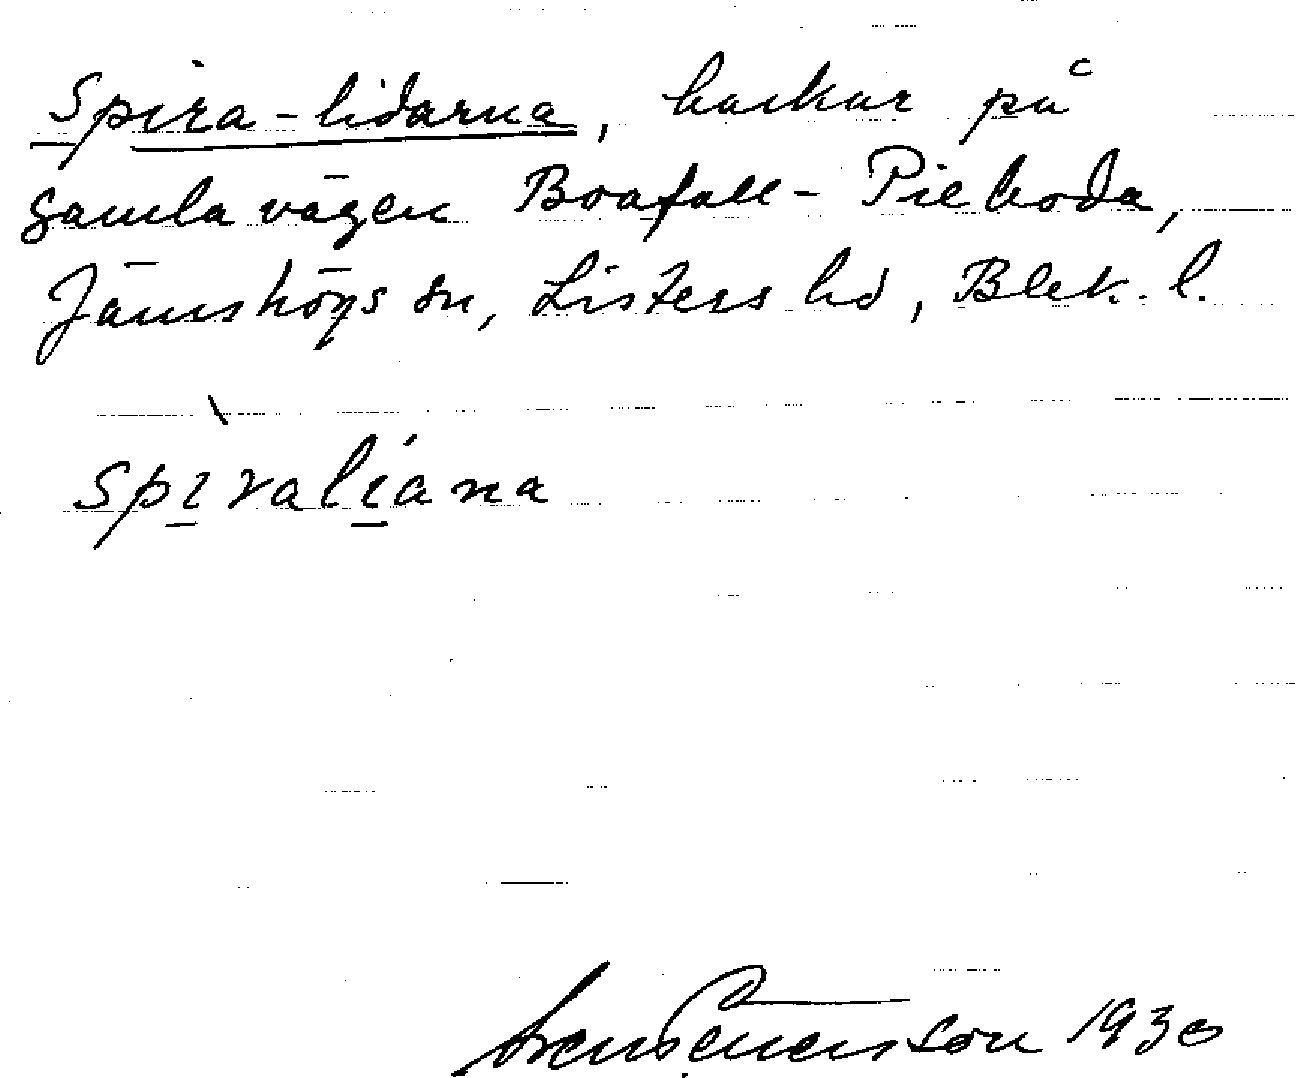 Spira-lidarna, backar på
gamla vägen Boafall - Pieboda,
Jämshögs sn, Listers hd, Blek. l.
spìraliána
Sven Svensson 1930